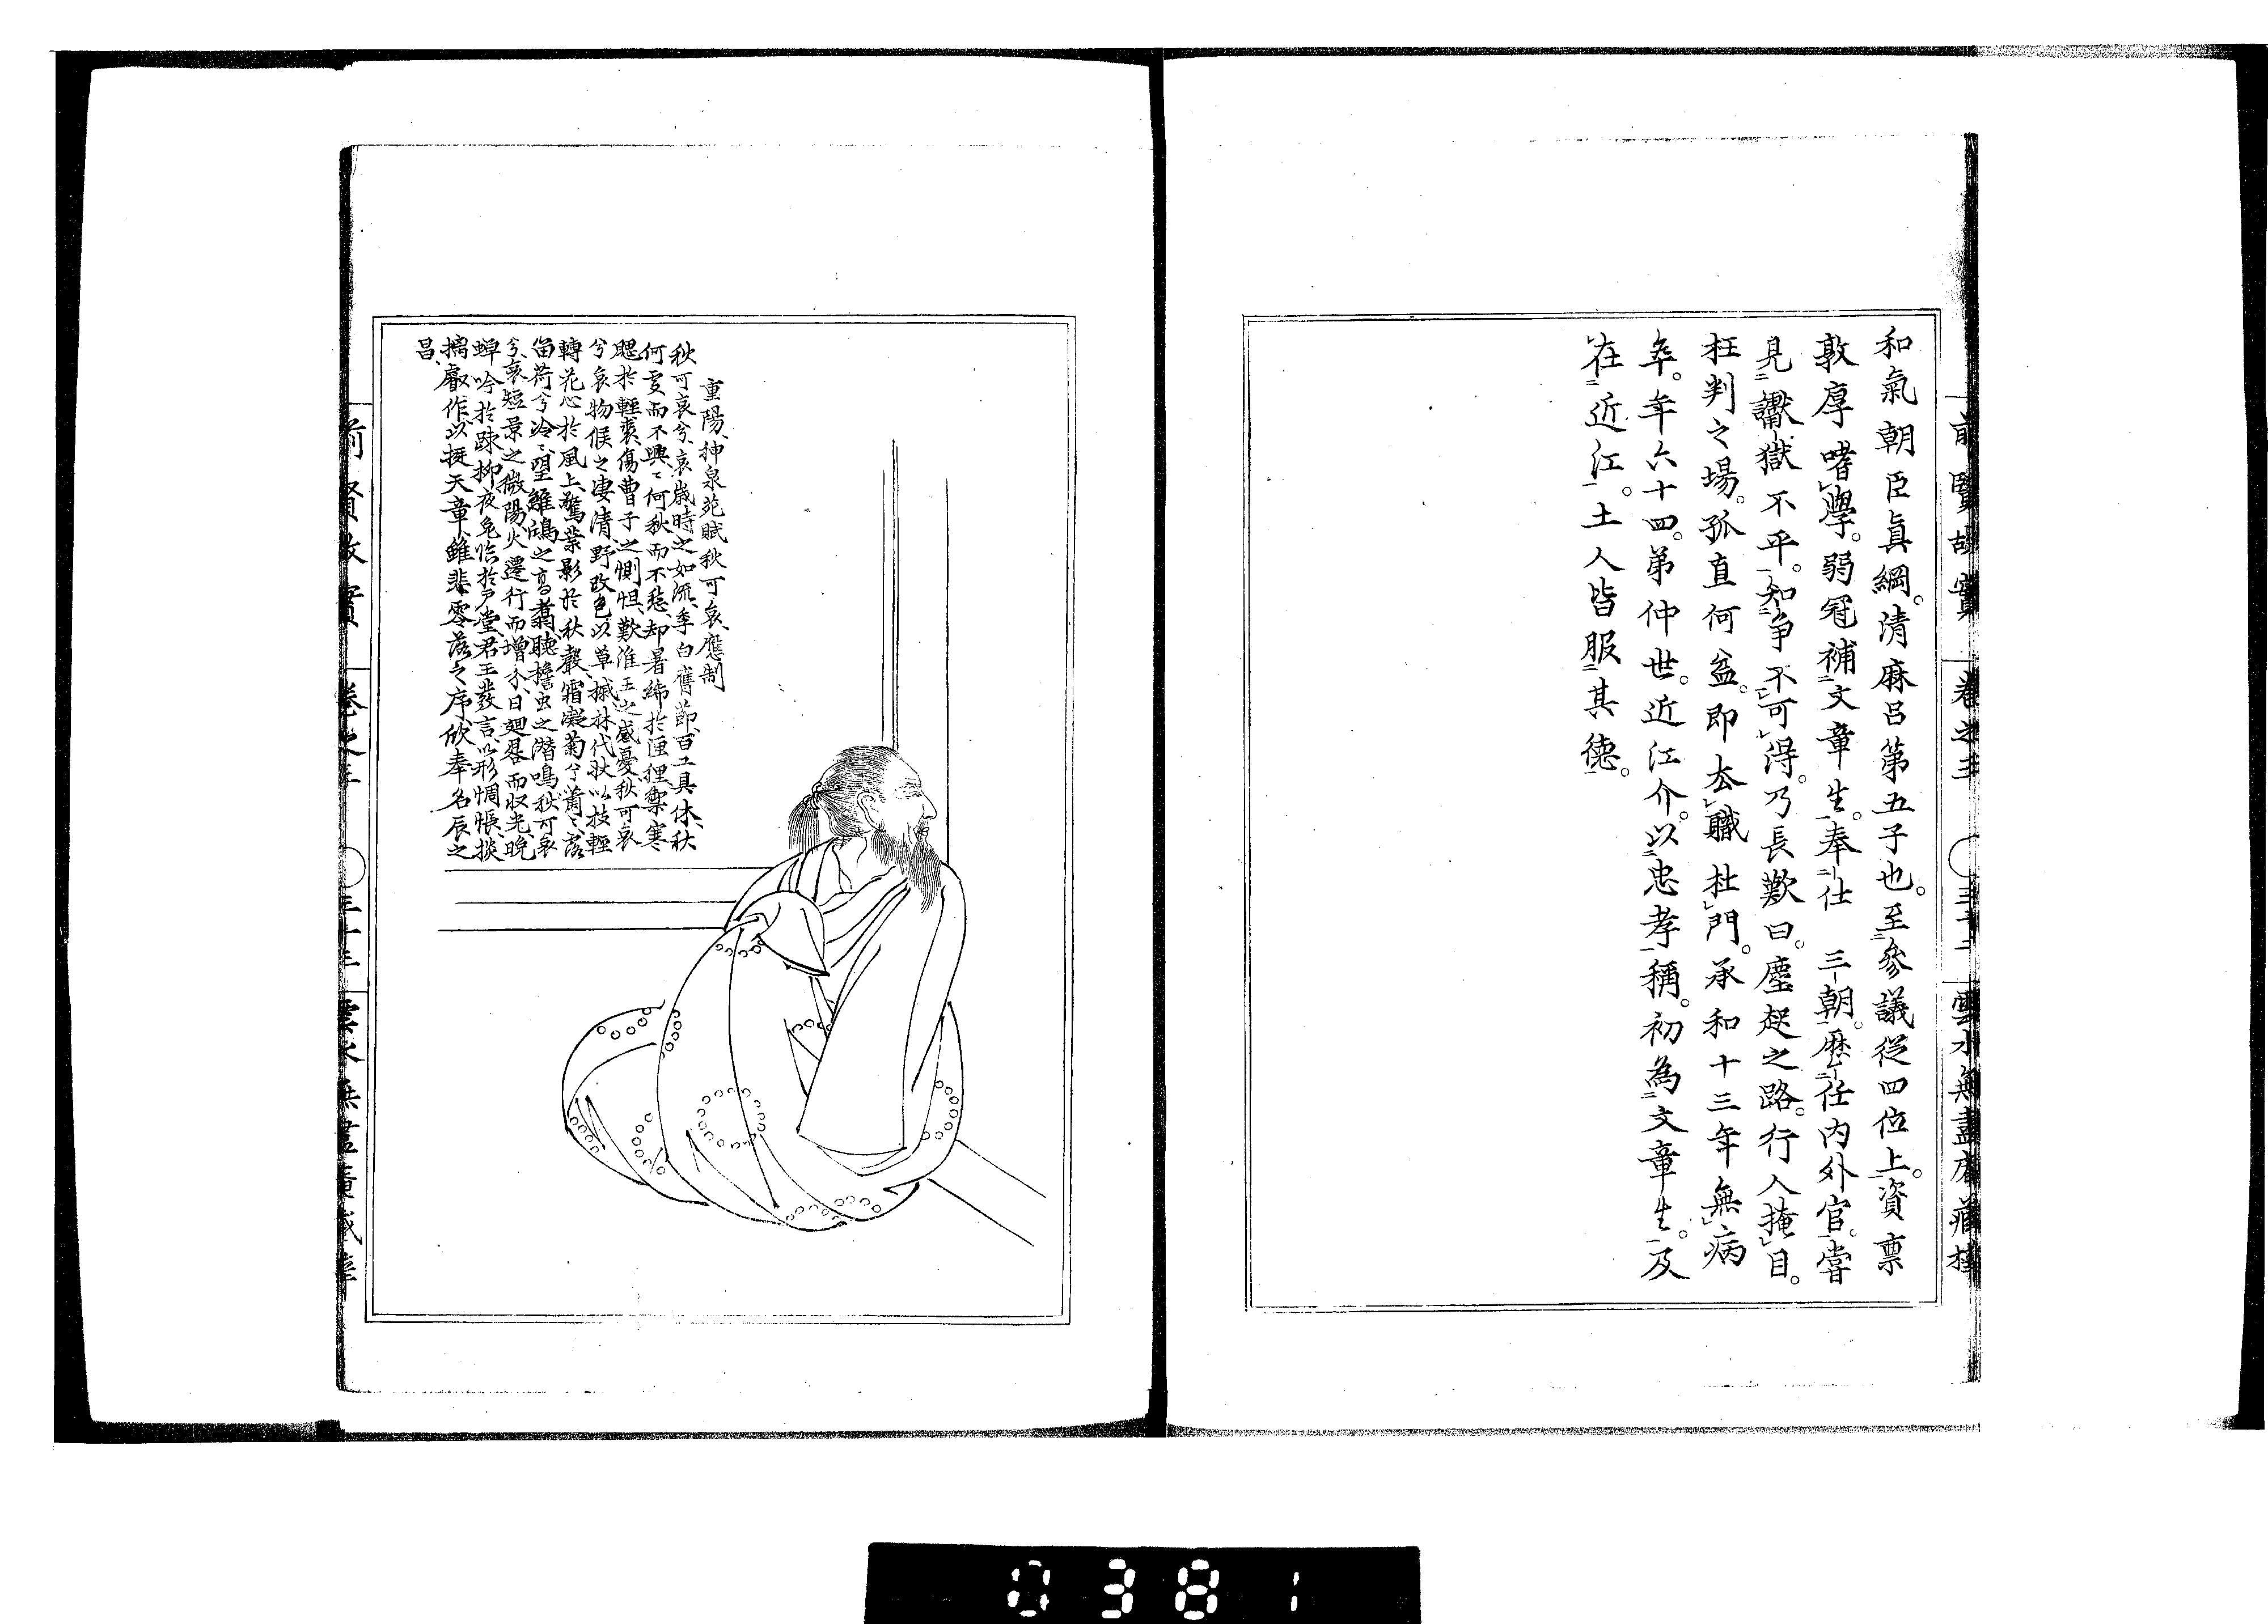 前賢故實 卷之三 ○三十二 雲水無盡庵藏梓
和氣朝臣眞綱。清麻呂第五子也。至參議從四位上。資稟
敦厚嗜學。弱冠補文章生。奉仕 三朝。歴任内外官。嘗
見讞獄不平。知爭不可得。乃長歎曰。塵起之路。行人掩目。
枉判之場。孤直何益。即去職杜門。承和十三年無病
卒。年六十四。弟仲世。近江介。以忠孝稱。初為文章生。及
在近江。土人皆服其德。
重陽、神泉苑賦秋可哀、應制
秋可哀兮、哀歳時之如流、季白舊節、百工具休、秋
何変而不興、何秋而不愁、却暑絺於匣裡、禦寒
服於輕裘、傷曹子之惻怛、歎淮王之感憂、秋可哀
兮、哀物候之凄清、野改色以草摵、林代状以枝輕
轉花心於風上、驚葉影於秋聲、霜凝菊兮蕭々、露
留荷兮冷々、望離鴻之高翥、聽擔虫之潜鳴、秋可哀
兮、哀短景之微陽、火遷行而増、日廻晷而収光、晩
蟬吟於踈柳、夜兔臨於戸堂、君王發言以形惆悵、掞
摛叡作以挺天章、雖悲零落之序、欣奉名辰之
昌、
前賢故實 卷之三 ○三十三 雲水無盡庵藏梓
0381